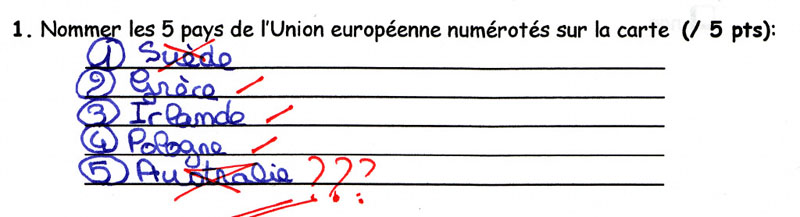 1. Nommer les 5 pays de l'Union européenne numérotés sur la carte (/ 5 pts):
① Suède
② Grèce
③ Irlande
④ Pologne
⑤ Australie ???